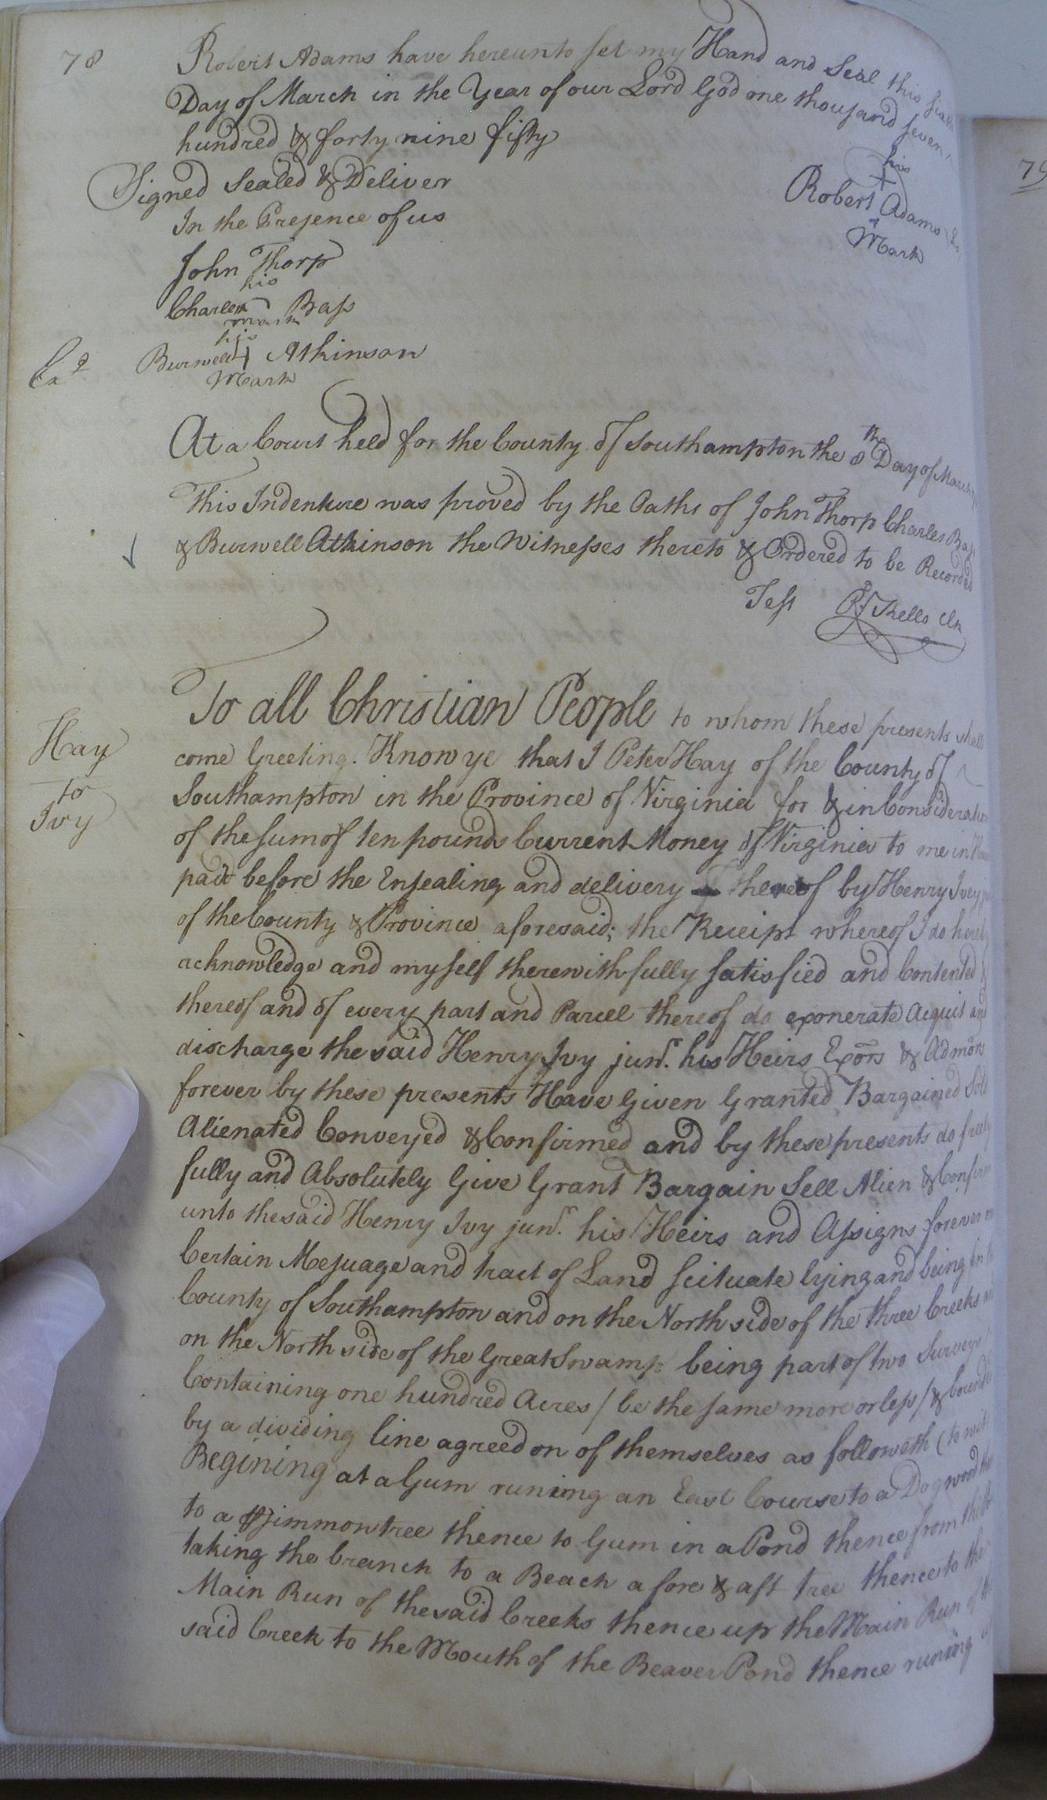 78
Robert Adams have hereunto set my Hand and Seal this
Day of March in the Year of our Lord God one thousand seven
hundred & forty nine fifty
Signed Sealed & Deliver
In the Presence of us
his
Robert + Adams
Mark
John Thorp
his
Charles Bass
mark
his
Burwell Atkinson
Mark
At a Court held for the County of Southampton the 8th Day of March
This Indenture was proved by the Oaths of John Thorp Charles Bass
& Burwell Atkinson the Witnesses thereto & Ordered to be Recorded
Test
Hay
to
Ivy
To all Christian People to whom these presents shall
come Greeting. Know ye that I Peter Hay of the County of
Southampton in the Province of Virginia for & in Consideration
of the sum of ten pounds Current Money of Virginia to me in
paid before the Ensealing and delivery thereof by Henry Ivey
of the County & Province aforesaid; the Receipt whereof I do hereby
acknowledge and my self therewith fully satisfied and Contented
thereof and of every part and Parcel thereof do exonerate Acquit and
discharge the said Henry Ivy junr. his Heirs Exors & Admors
forever by these presents Have Given Granted Bargained Sold
Alienated Conveyed & Confirmed and by these presents do freely
fully and Absolutely Give Grant Bargain Sell Alien & Confirm
unto the said Henry Ivy junr. his Heirs and Assigns forever
Certain Mesuage and tract of Land scituate lying and being in
County of Southampton and on the North side of the three Creeks
on the North side of the Great Swamp being part of two Surveys
Containing one hundred Acres / be the same more or less / & bounded
by a dividing line agreed on of themselves as followeth (to wit
Begining at a Gum runing an East Course to a Dogwood
to a simmon tree thence to Gum in a Pond thence from
taking the branch to a Beach a fore & aft tree thence to the
Main Run of the said Creeks thence up the Main Run of
said Creek to the Mouth of the Beaver Pond thence runing
79